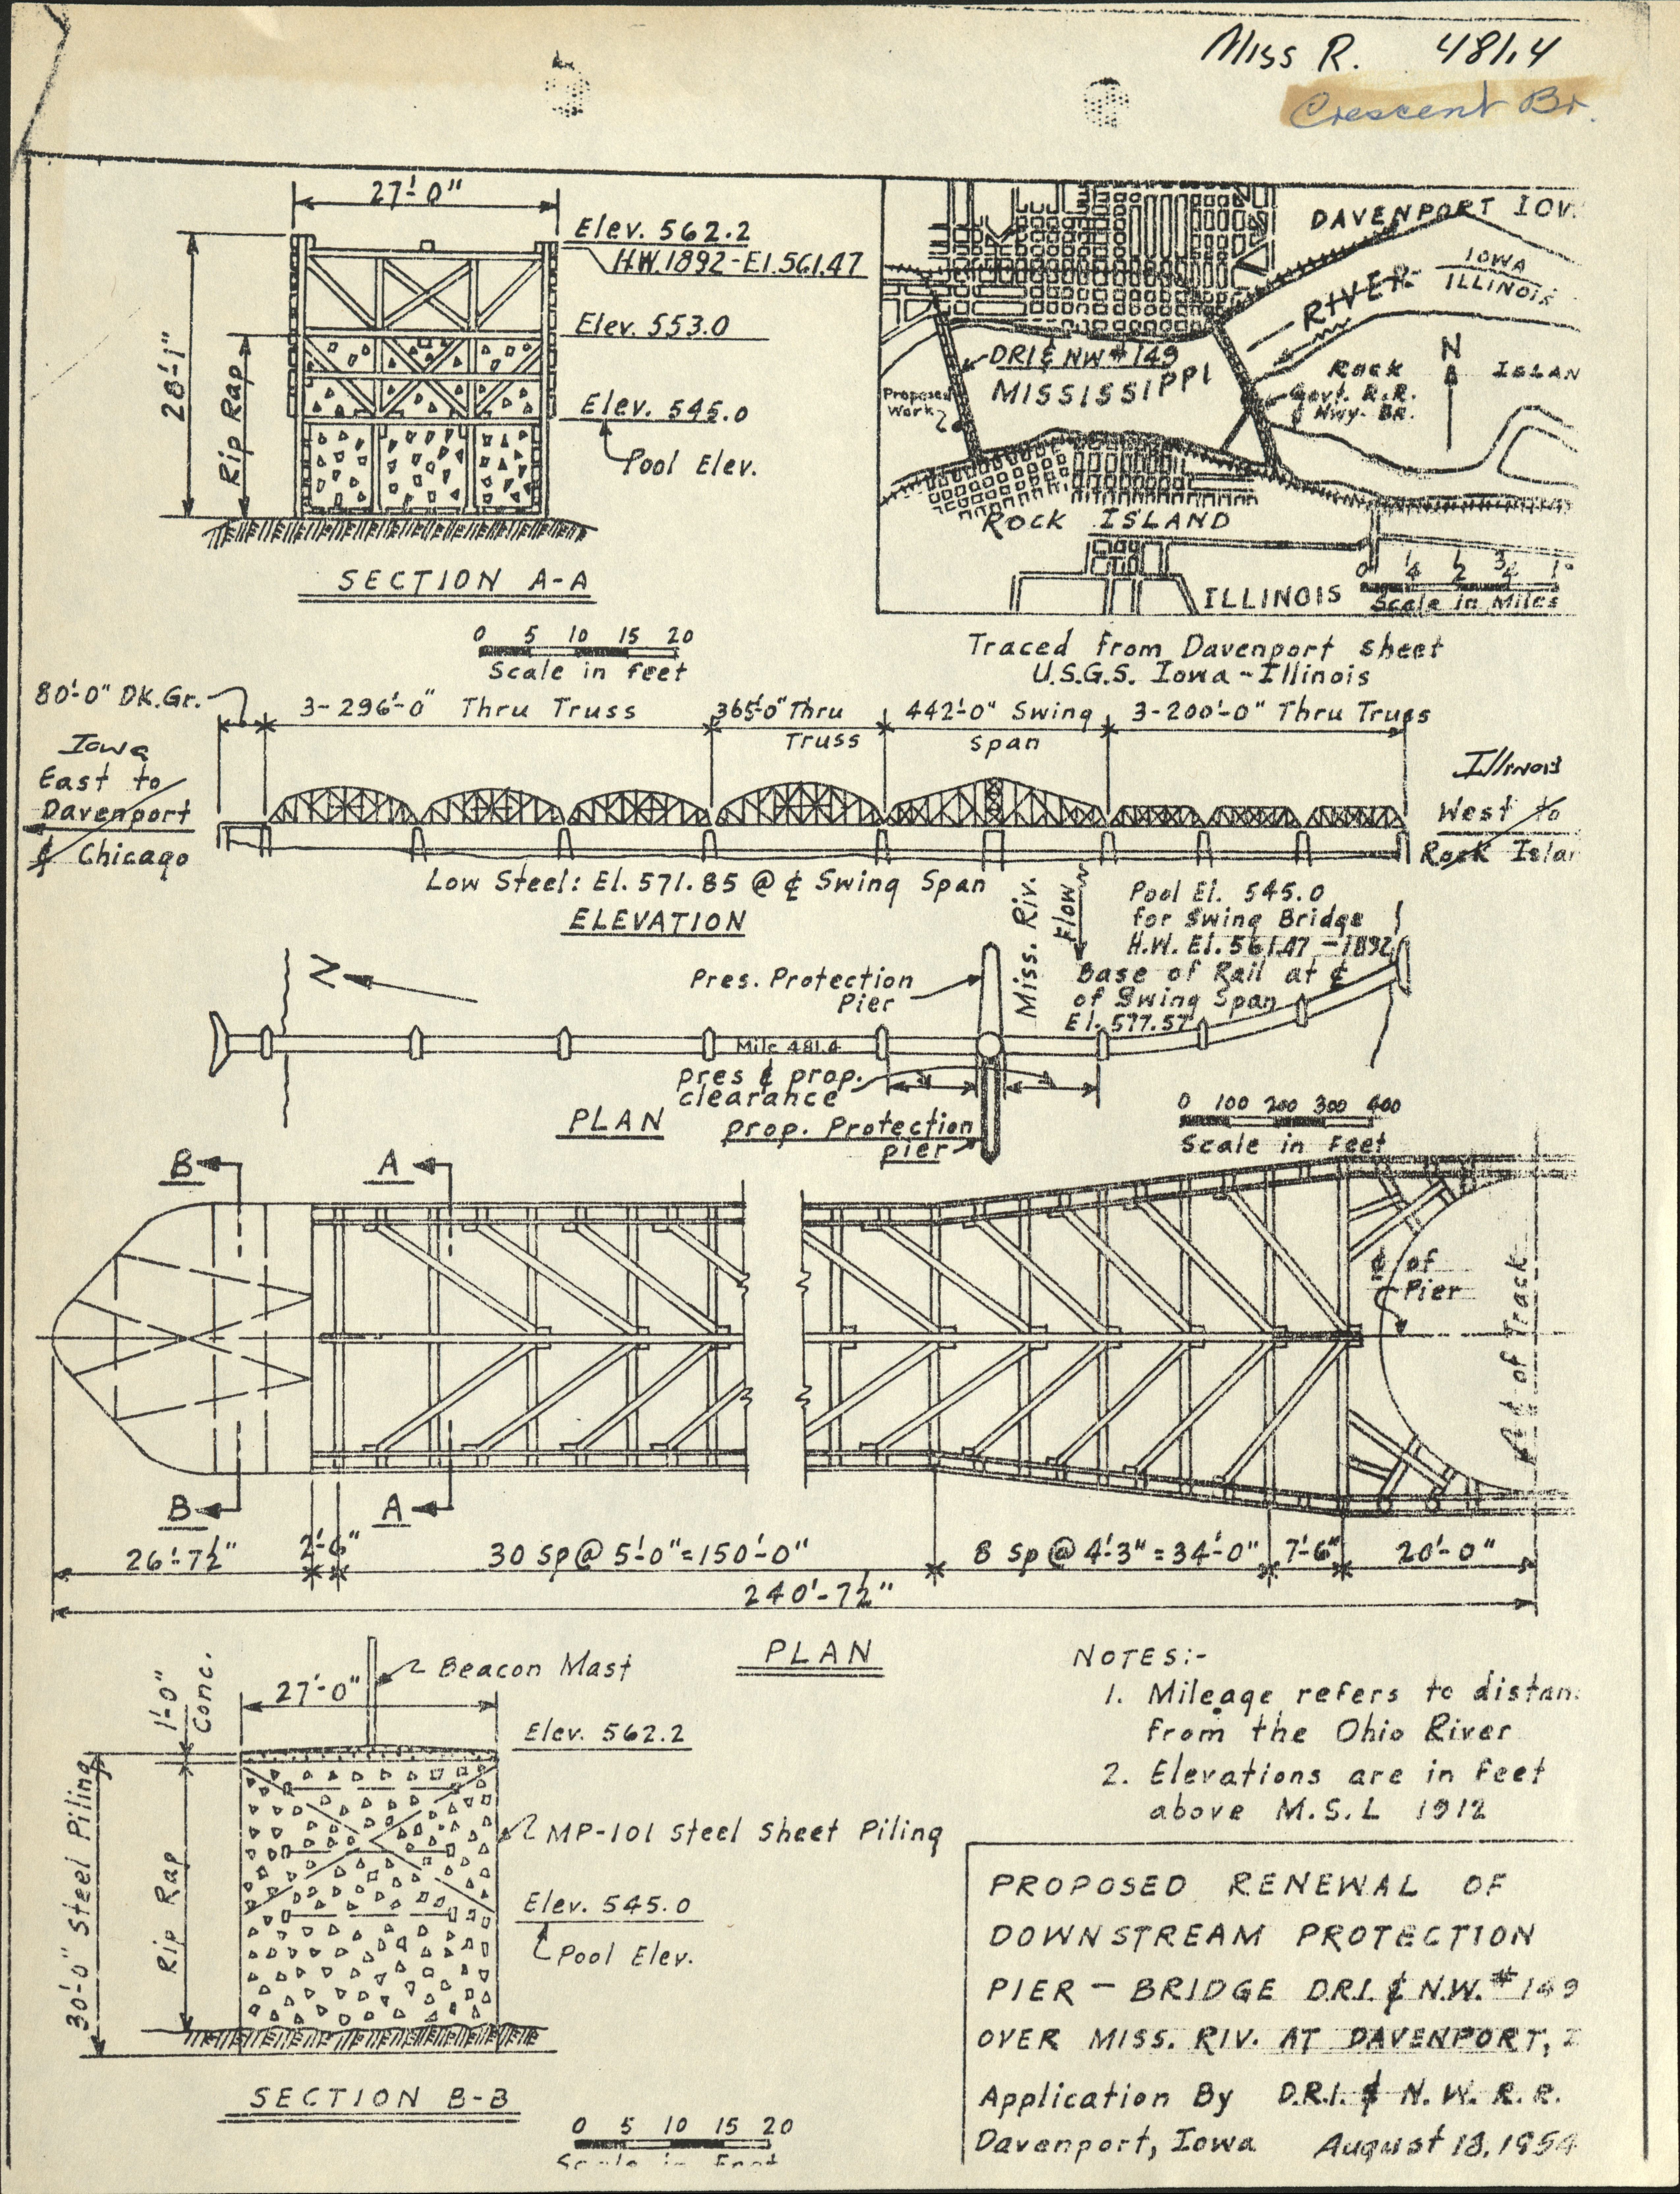 Miss R. 481.4
Crescent Br.
27'-0"
Elev. 562.2
H.W. 1892-El. 561.47
Elev. 553.0
Elev. 545.0
Pool Elev.
28'-1"
Rip Rap
SECTION A-A
0 5 10 15 20
Scale in feet
DAVENPORT IOW
IOWA
ILLINOIS
RIVER
DRI & NW #149
MISSISSIPPI
Proposed
Work
N
ROCK ISLAN
Govt. R.R.
& Hwy- BR.
ROCK ISLAND
ILLINOIS
0 1/4 1/2 3/4 1
Scale in Miles
Traced from Davenport sheet
U.S.G.S. Iowa-Illinois
80'-0" DK.Gr.
3-296'-0" Thru Truss
365'-0" Thru
Truss
442'-0" Swing
Span
3-200'-0" Thru Truss
Iowa
East to
Davenport
& Chicago
Illinois
West to
Rock Islan
Low Steel: El. 571.85 @ ₵ Swing Span
ELEVATION
Miss. Riv.
Flow
Pool El. 545.0
for Swing Bridge
H.W. El. 561.47 - 1892
Base of Rail at ₵
of Swing Span
El. 577.57
N
Pres. Protection
Pier
Mile 481.4
pres & prop.
clearance
PLAN
prop. Protection
pier
0 100 200 300 400
Scale in Feet
B
A
₵ of
Pier
₵ of Track
B
A
26'-7½"
2'-6"
30 Sp @ 5'-0"=150'-0"
8 Sp @ 4'-3"=34'-0"
7'-6"
20'-0"
240'-7½"
PLAN
1'-0"
Conc.
27'-0"
Beacon Mast
Elev. 562.2
MP-101 Steel Sheet Piling
Elev. 545.0
Pool Elev.
30'-0" Steel Piling
Rip Rap
SECTION B-B
0 5 10 15 20
Scale in Feet
NOTES:-
1. Mileage refers to distan
from the Ohio River
2. Elevations are in feet
above M.S.L 1912
PROPOSED RENEWAL OF
DOWNSTREAM PROTECTION
PIER - BRIDGE D.R.I. & N.W. #149
OVER MISS. RIV. AT DAVENPORT, I
Application By D.R.I. & N.W. R.R.
Davenport, Iowa August 18, 1954